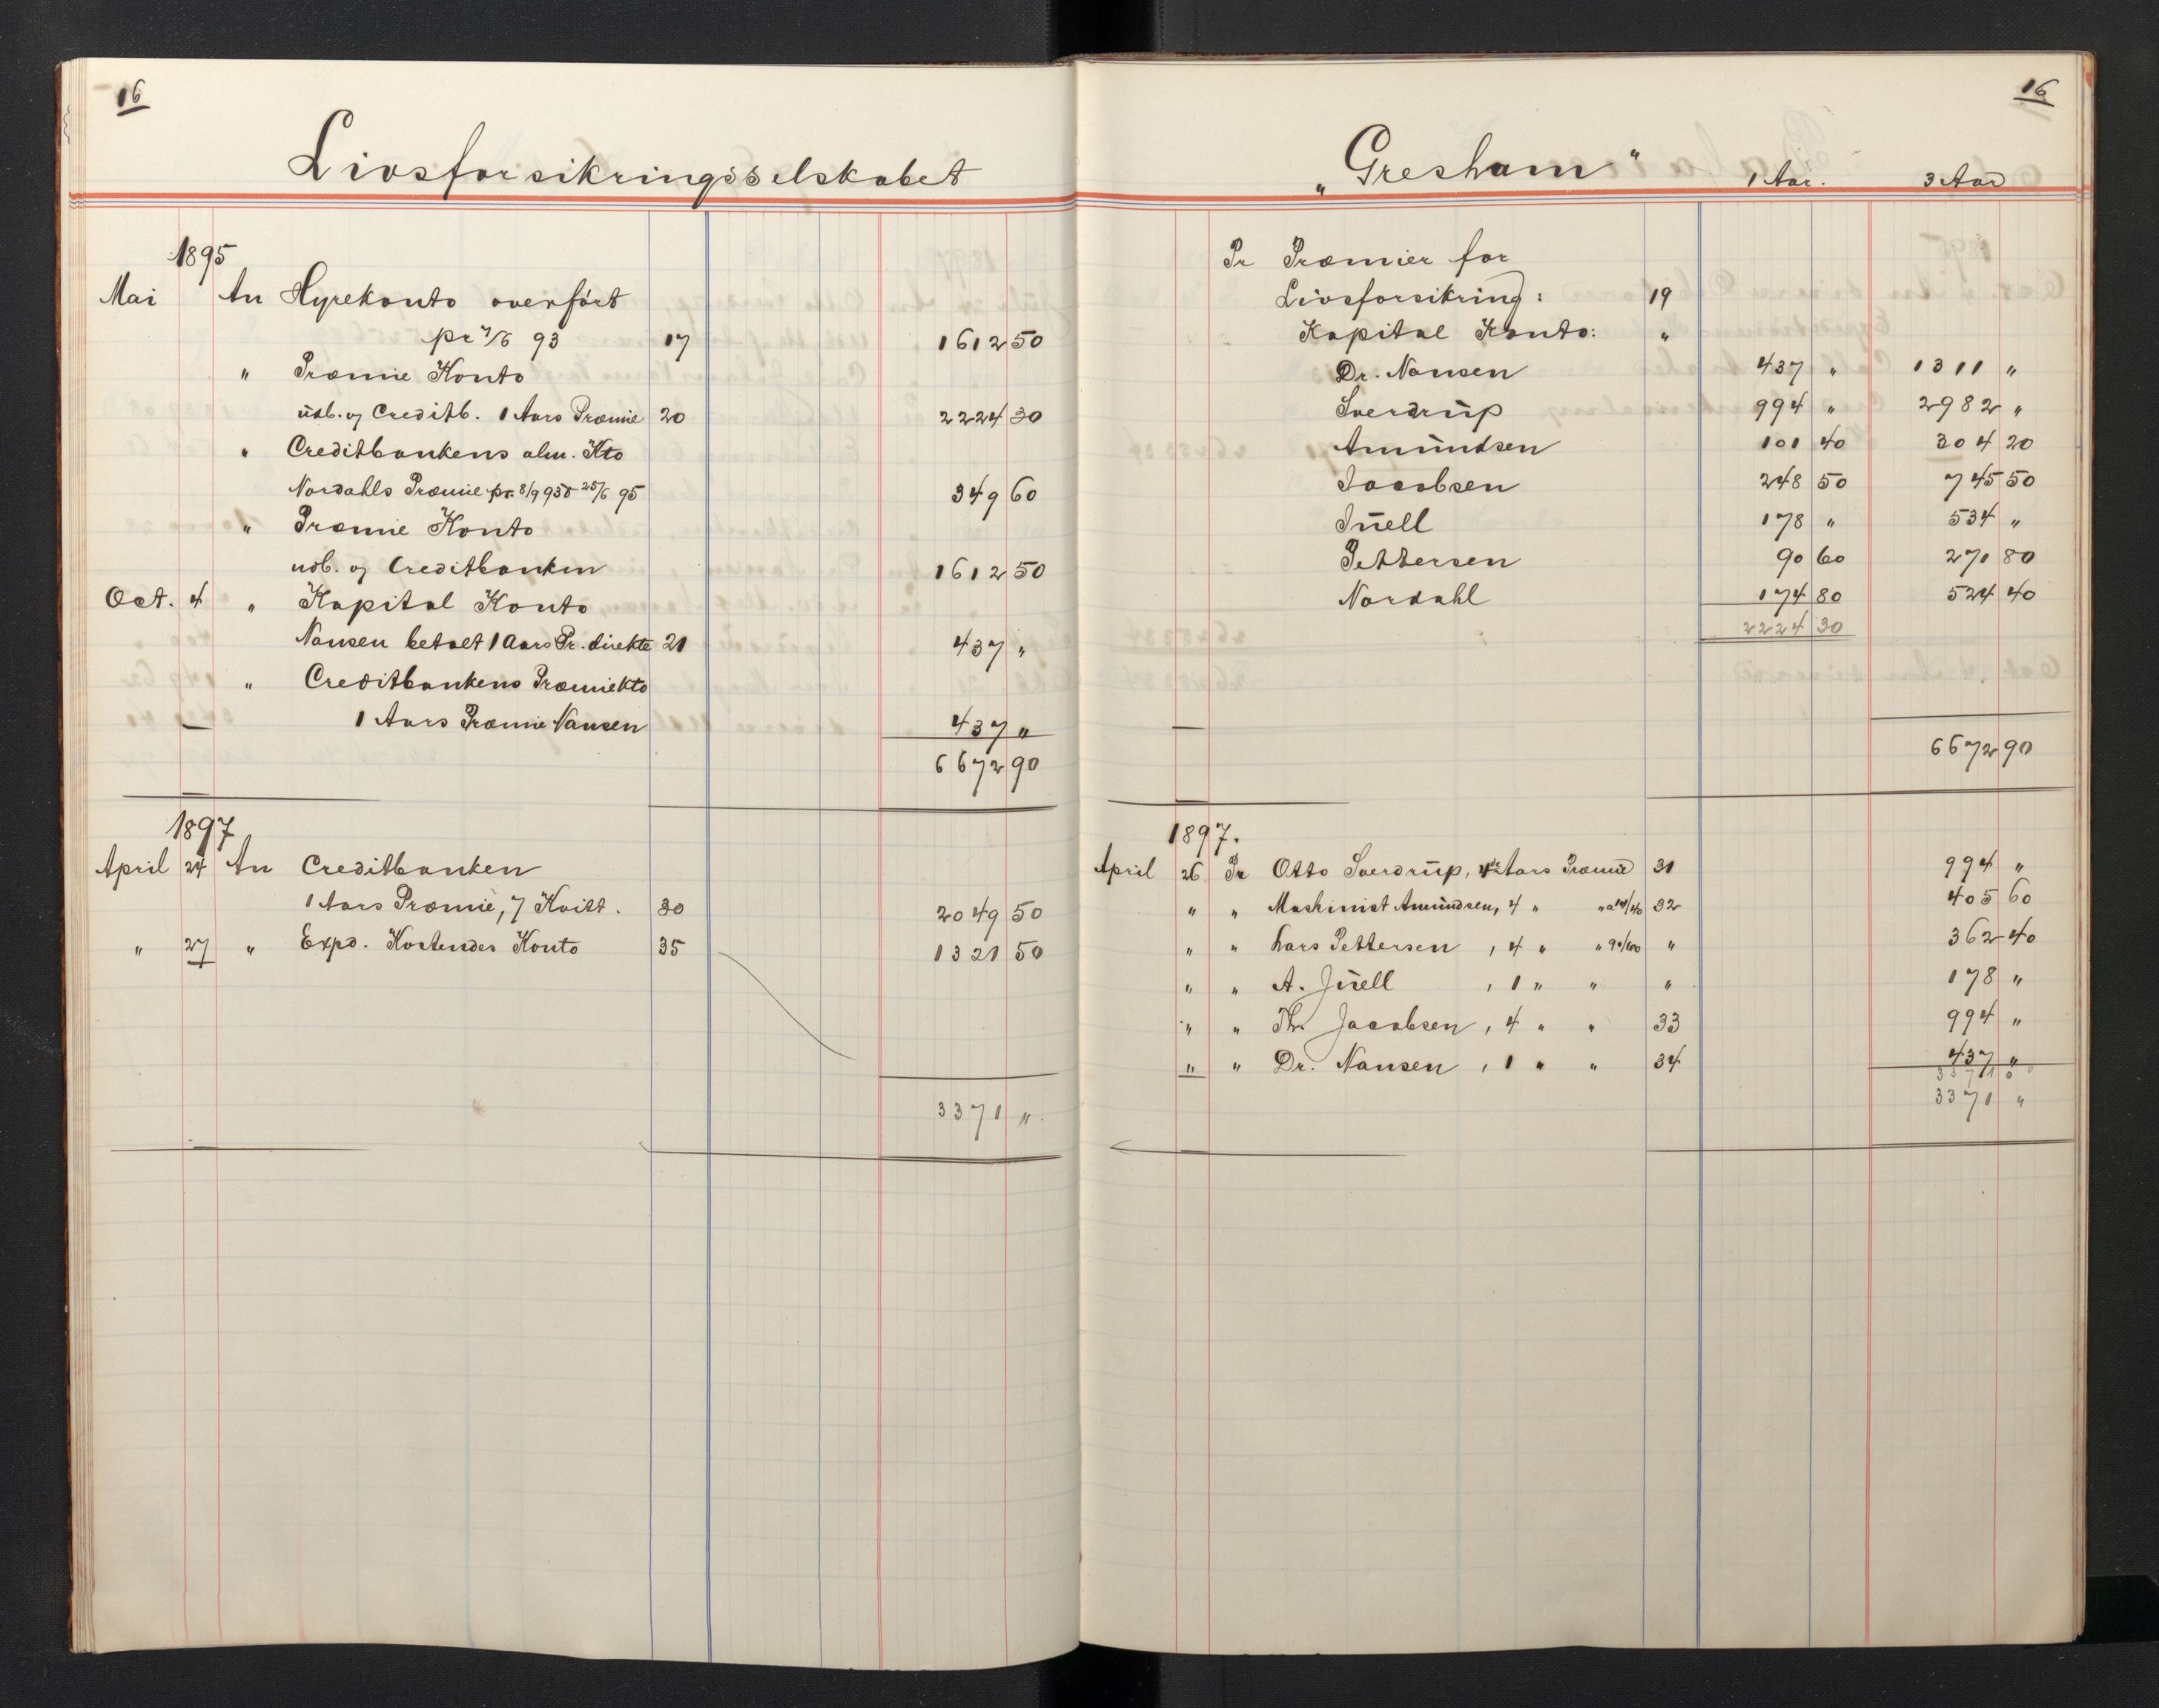 16
Livsforsikringsselskabet
1895
Mai An Hyrekonto overført
pr 7/6 93 17 1612 50
" Præmie Konto
udb. og Creditb. 1 Aars Præmie 20 2224 30
" Creditbankens alm. Kto
Nordahls Præmie pr. 8/9 93 & 25/6 95 349 60
" Præmie Konto
udb. og Creditbanken 1612 50
Oct. 4 " Kapital Konto
Nansen betalt 1 Aars Pr. direkte 21 437 "
" Creditbankens Præmiekto
1 Aars Præmie Nansen 437 "
6672 90
1897
April 24 An Creditbanken
1 Aars Præmie, 7 Kvitt. 30 2049 50
" 27 " Expd. Kostendes Konto 35 1321 50
3371 "
16
„Gresham" 1 Aar. 3 Aar
Pr Præmier for
Livsforsikring: 19
Kapital Konto: "
Dr. Nansen 437 " 1311 "
Sverdrup 994 " 2982 "
Amundsen 101 40 304 20
Jacobsen 248 50 745 50
Juell 178 " 534 "
Pettersen 90 60 271 80
Nordahl 174 80 524 40
2224 30
6672 90
1897.
April 26 Pr Otto Sverdrup, 4de Aars Præmie 31 994 "
" " Maskinist Amundsen, 4 " " a 101/40 32 405 60
" " Lars Pettersen, 4 " " 90/60 " 362 40
" " A. Juell, 1 " " " 178 "
" " Th. Jacobsen, 4 " " 33 994 "
" " Dr. Nansen, 1 " " 34 437 "
3371 "